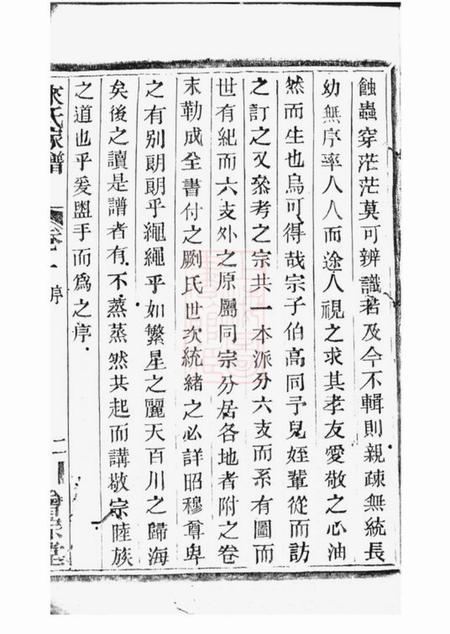 蝕蟲穿茫茫莫可辨識若及今不輯則親疎無統長
幼無序率人人而途人視之求其孝友愛敬之心油
然而生也烏可得哉宗子伯高同予兒姪輩從而訪
之訂之又叅考之宗共一本派分六支而系有圖而
世有紀而六支外之原屬同宗分居各地者附之卷
末勒成全書付之劂氏世次統緒之必詳昭穆尊卑
之有別朗朗乎繩繩乎如繁星之麗天百川之歸海
矣後之讀是譜者有不蒸蒸然共起而講敬宗陸族
之道也乎爰盟手而爲之序
來氏家譜 卷一 序 二 會宗堂